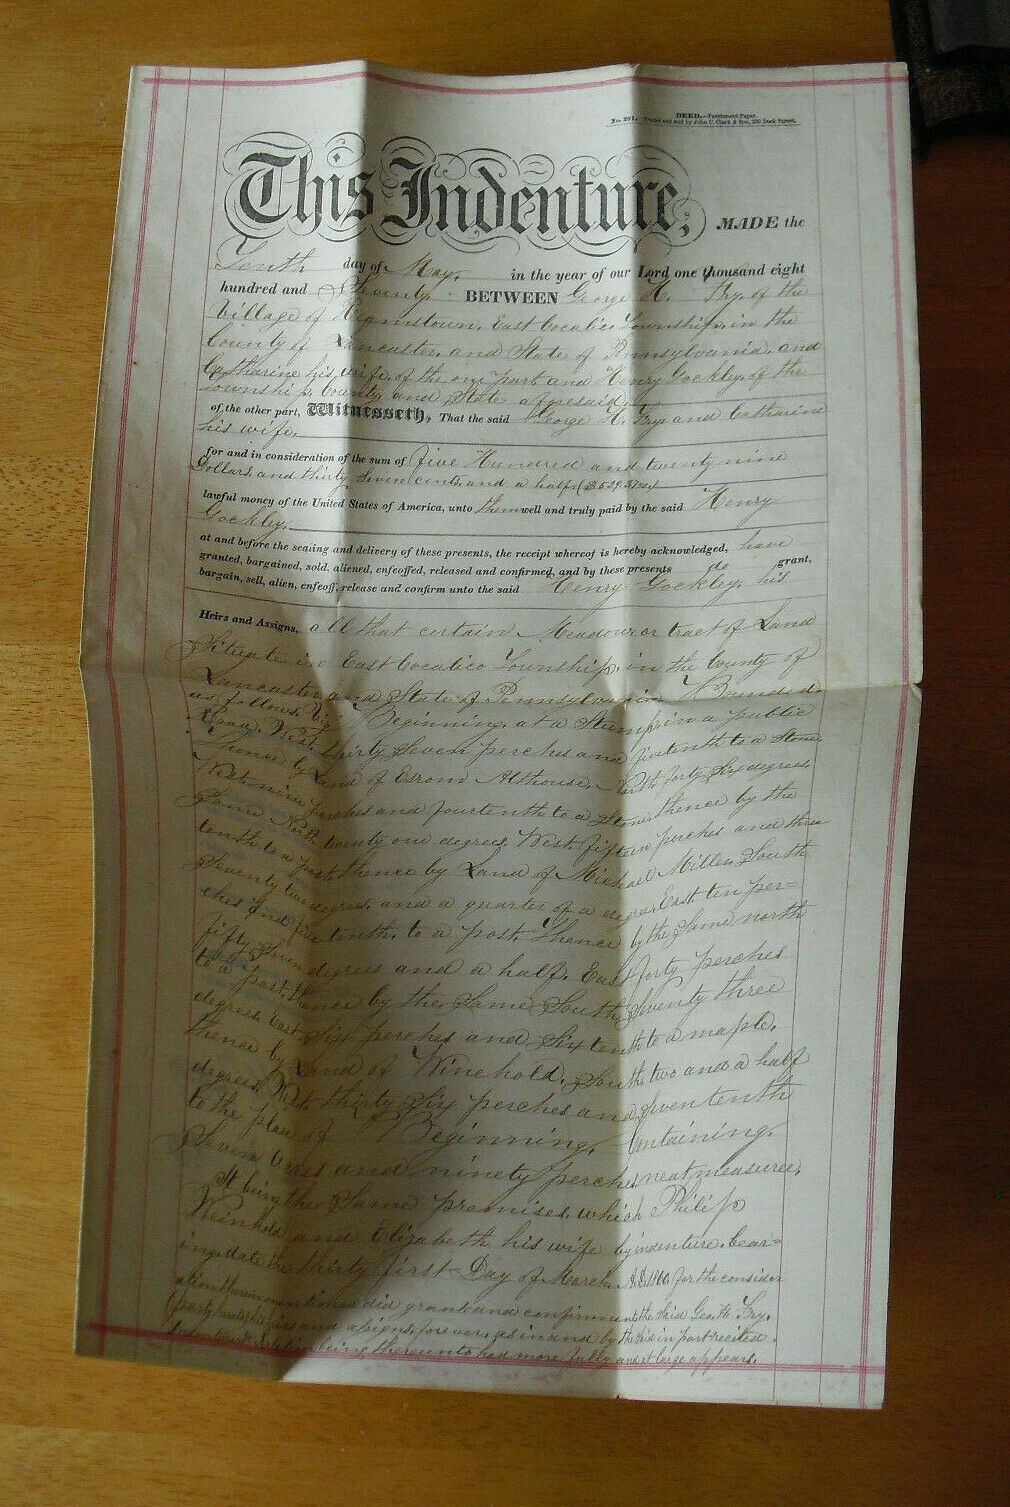 No. 291. DEED.—Parchment Paper.
Printed and sold by John C. Clark & Son, 230 Dock Street.
This Indenture, MADE the
Tenth day of May. in the year of our Lord one thousand eight
hundred and Seventy. BETWEEN George H. Fry, of the
Village of Reamstown, East Cocalico Township, in the
County of Lancaster, and State of Pennsylvania, and
Catharine his wife, of the one part and Henry Gockley, of the
township, County, and State aforesaid,
of the other part, Witnesseth, That the said George H. Fry and Catharine
his wife,
for and in consideration of the sum of Five Hundred and twenty nine
Dollars, and thirty Seven cents, and a half
lawful money of the United States of America, unto them well and truly paid by the said Henry
Gockley,
at and before the sealing and delivery of these presents, the receipt whereof is hereby acknowledged, have
granted, bargained, sold, aliened, enfeoffed, released and confirmed, and by these presents do grant,
bargain, sell, alien, enfeoff, release and confirm unto the said Henry Gockley, his
Heirs and Assigns, all that certain Meadow or tract of Land
Situate in East Cocalico Township, in the County of
Lancaster and State of Pennsylvania Bounded
as follows, Viz; Beginning, at a Stump in a public
Road, West, thirty Seven perches and tenth to a Stone
Thence by Land of Esrom Althouse, North forty Six degrees
West nine perches and four tenth to a Stone, thence by the
Same North twenty one degrees, West, fifteen perches and three
tenth to a post, thence by Land of Michael Miller South
Seventy two degrees, and a quarter of a degree, East ten per=
ches and five tenth, to a post, Thence by the Same north
fifty Seven degrees and a half, East forty perches
to a post, thence by the Same South Seventy three
degrees East Six perches and Six tenth to a maple,
thence by Land of Winehold, South, two and a half
degrees, West, thirty Six perches and Seven tenth
to the place of Beginning, Containing,
Seven Acres and ninety perches neat measure,
It being the Same premises, which Philip
Weinhold and Elizabeth his wife by indenture, bear=
ing date the thirty first Day of March, A.D. 1860, for the consider
ation therein mentioned did grant and confirm unto the said Fry,
heirs and assigns, forever, as in and by the in part recited
being thereunto had more fully and at large appears.